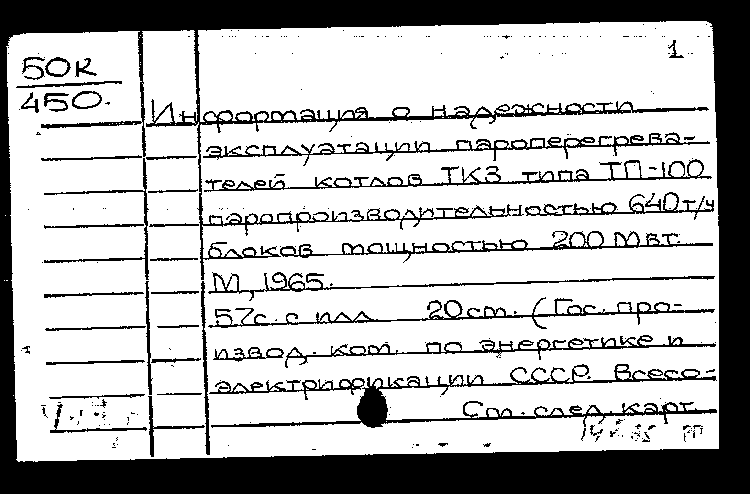 1
50к
450.
Информация о надежности
эксплуатации пароперегрева-
телей котлов ТКЗ типа ТП-100
паропроизводительностью 640т/ч
блоков мощностью 200 Мвт.
М, 1965.
57с. с илл 20см. (Гос. про-
извод. ком. по энергетике и
электрификации СССР. Всесо-
См. след. карт.